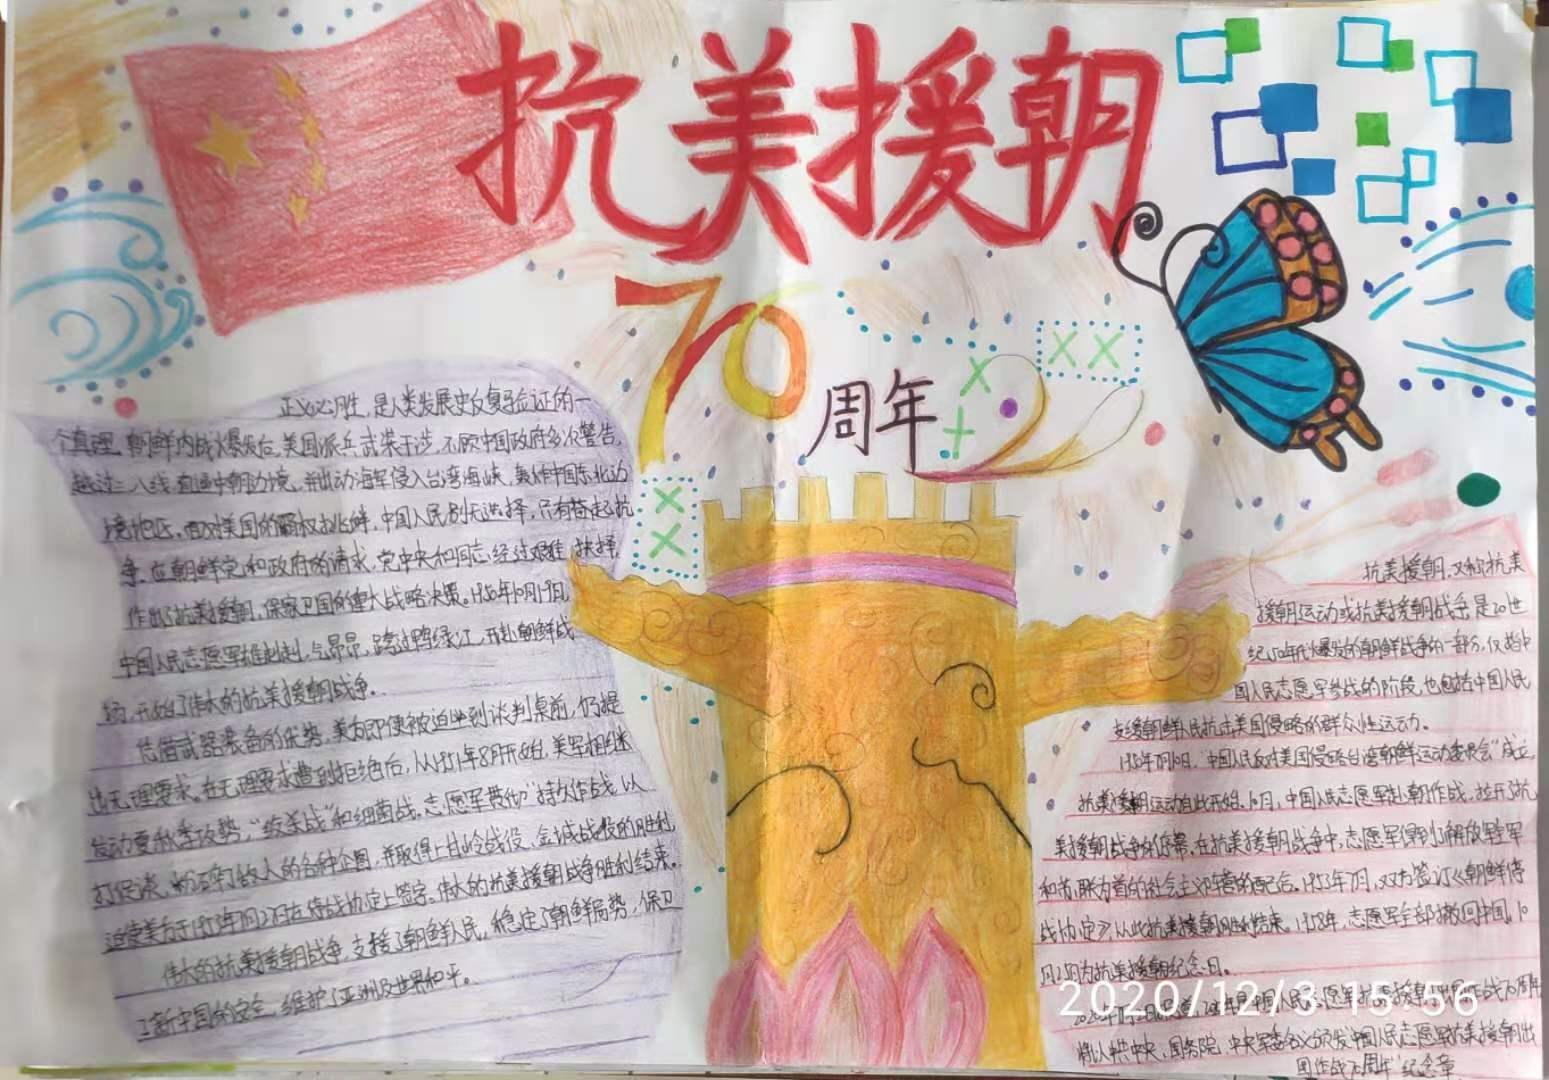 抗美援朝
70
周年
正义必胜,是人类发展史反复验证的一
个真理。朝鲜内战爆发后,美国派兵武装干涉,不顾中国政府多次警告,
越过三八线,直逼中朝边境,并出动海军侵入台湾海峡,轰炸中国东北边
境地区。面对美国的霸权挑衅,中国人民别无选择,只有奋起抗
争。应朝鲜党和政府的请求,党中央和同志,经过艰难抉择,
作出了抗美援朝,保家卫国的重大战略决策。1950年10月19日,
中国人民志愿军雄赳赳,气昂昂,跨过鸭绿江,开赴朝鲜战
场,开始了伟大的抗美援朝战争。
凭借武器装备的优势,美方即使被迫坐到谈判桌前,仍提
出无理要求。在无理要求遭到拒绝后,从1951年8月开始,美军相继
发动夏秋季攻势,“绞杀战”和细菌战。志愿军贯彻“持久作战,以
打促谈,粉碎了敌人的各种企图,并取得上甘岭战役,金城战役的胜利
迫使美方于1953年7月27日在停战协定上签字。伟大的抗美援朝战争胜利结束。
伟大的抗美援朝战争,支援了朝鲜人民,稳定了朝鲜局势,保卫
了新中国的安全,维护了亚洲及世界和平。
抗美援朝,又称抗美
援朝运动或抗美援朝战争,是20世
纪50年代爆发的朝鲜战争的一部分,仅指中
国人民志愿军参战的阶段,也包括中国人民
支援朝鲜人民抗击美国侵略的群众性运动。
1950年7月10日,“中国人民反对美国侵略台湾朝鲜运动委员会”成立,
抗美援朝运动自此开始。10月,中国人民志愿军赴朝作战,拉开抗
美援朝战争的序幕。在抗美援朝战争中,志愿军得到了解放军全军
和苏联为首的社会主义阵营的配合。1953年7月,双方签订《朝鲜停
战协定》从此抗美援朝胜利结束。1958年,志愿军全部撤回中国。10
月25日为抗美援朝纪念日。
中国人民志愿军抗美援朝出国作战70周年
将以中共中央、国务院、中央军委名义颁发“中国人民志愿军抗美援朝出
国作战70周年”纪念章
2020/12/3 15:56